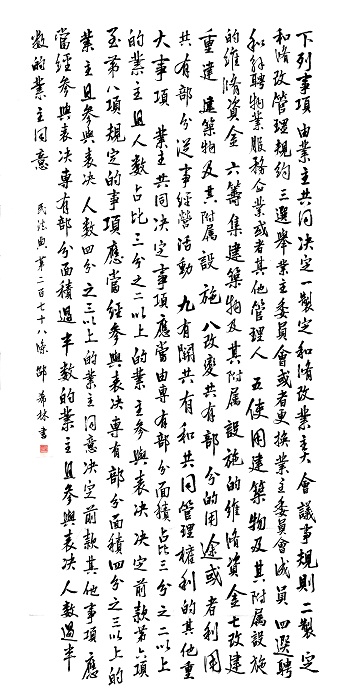 下列事項由業主共同决定一製定和脩改業主大會議事規則二製定
和脩改管理規約三選舉業主委員會或者更换業主委員會成員四選聘
和解聘物業服務企業或者其他管理人五使用建築物及其附属設施
的維脩資金六籌集建築物及其附属設施的維脩資金七改建
重建建築物及其附属設施八改變共有部分的用途或者利用
共有部分從事經營活動九有關共有和共同管理權利的其他重
大事項業主共同决定事項應當由專有部分面積占比三分之二以上
的業主且人數占比三分之二以上的業主參與表决决定前款第六項
至第八項規定的事項應當經參與表决專有部分面積四分之三以上的
業主且參與表决人數四分之三以上的業主同意决定前款其他事項應
當經參與表决專有部分面積過半數的業主且參與表决人數過半
數的業主同意
民法典第二百七十八條 林書